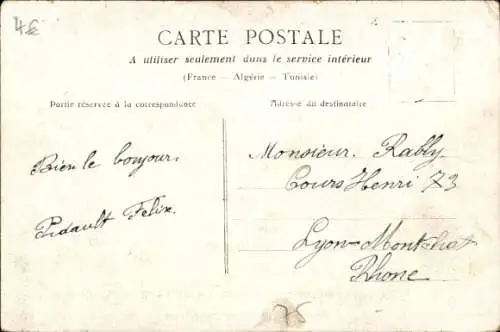 4€
CARTE POSTALE
A utiliser seulement dans le service intérieur
(France — Algérie — Tunisie)
Partie réservée à la correspondance
Adresse du destinataire
Bien le bonjour.
Pidault Felix.
Monsieur. Rably
Cours Henri 73
Lyon-Montchat
Rhone
75